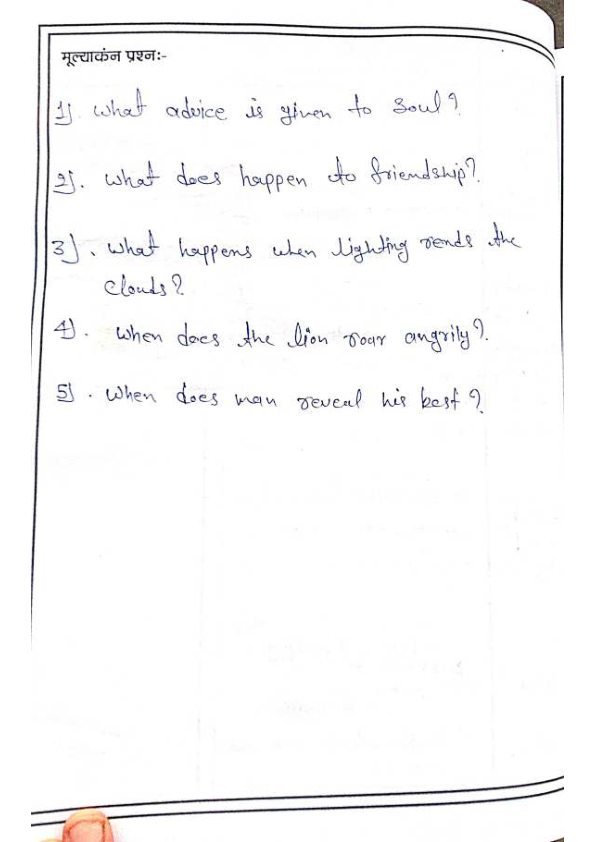 मूल्याकंन प्रश्नः-
1). What advice is given to Soul?
2). What does happen to friendship?
3). What happens when lighting rends the
Clouds?
4). When does the lion roar angrily?
5). When does man reveal his best?